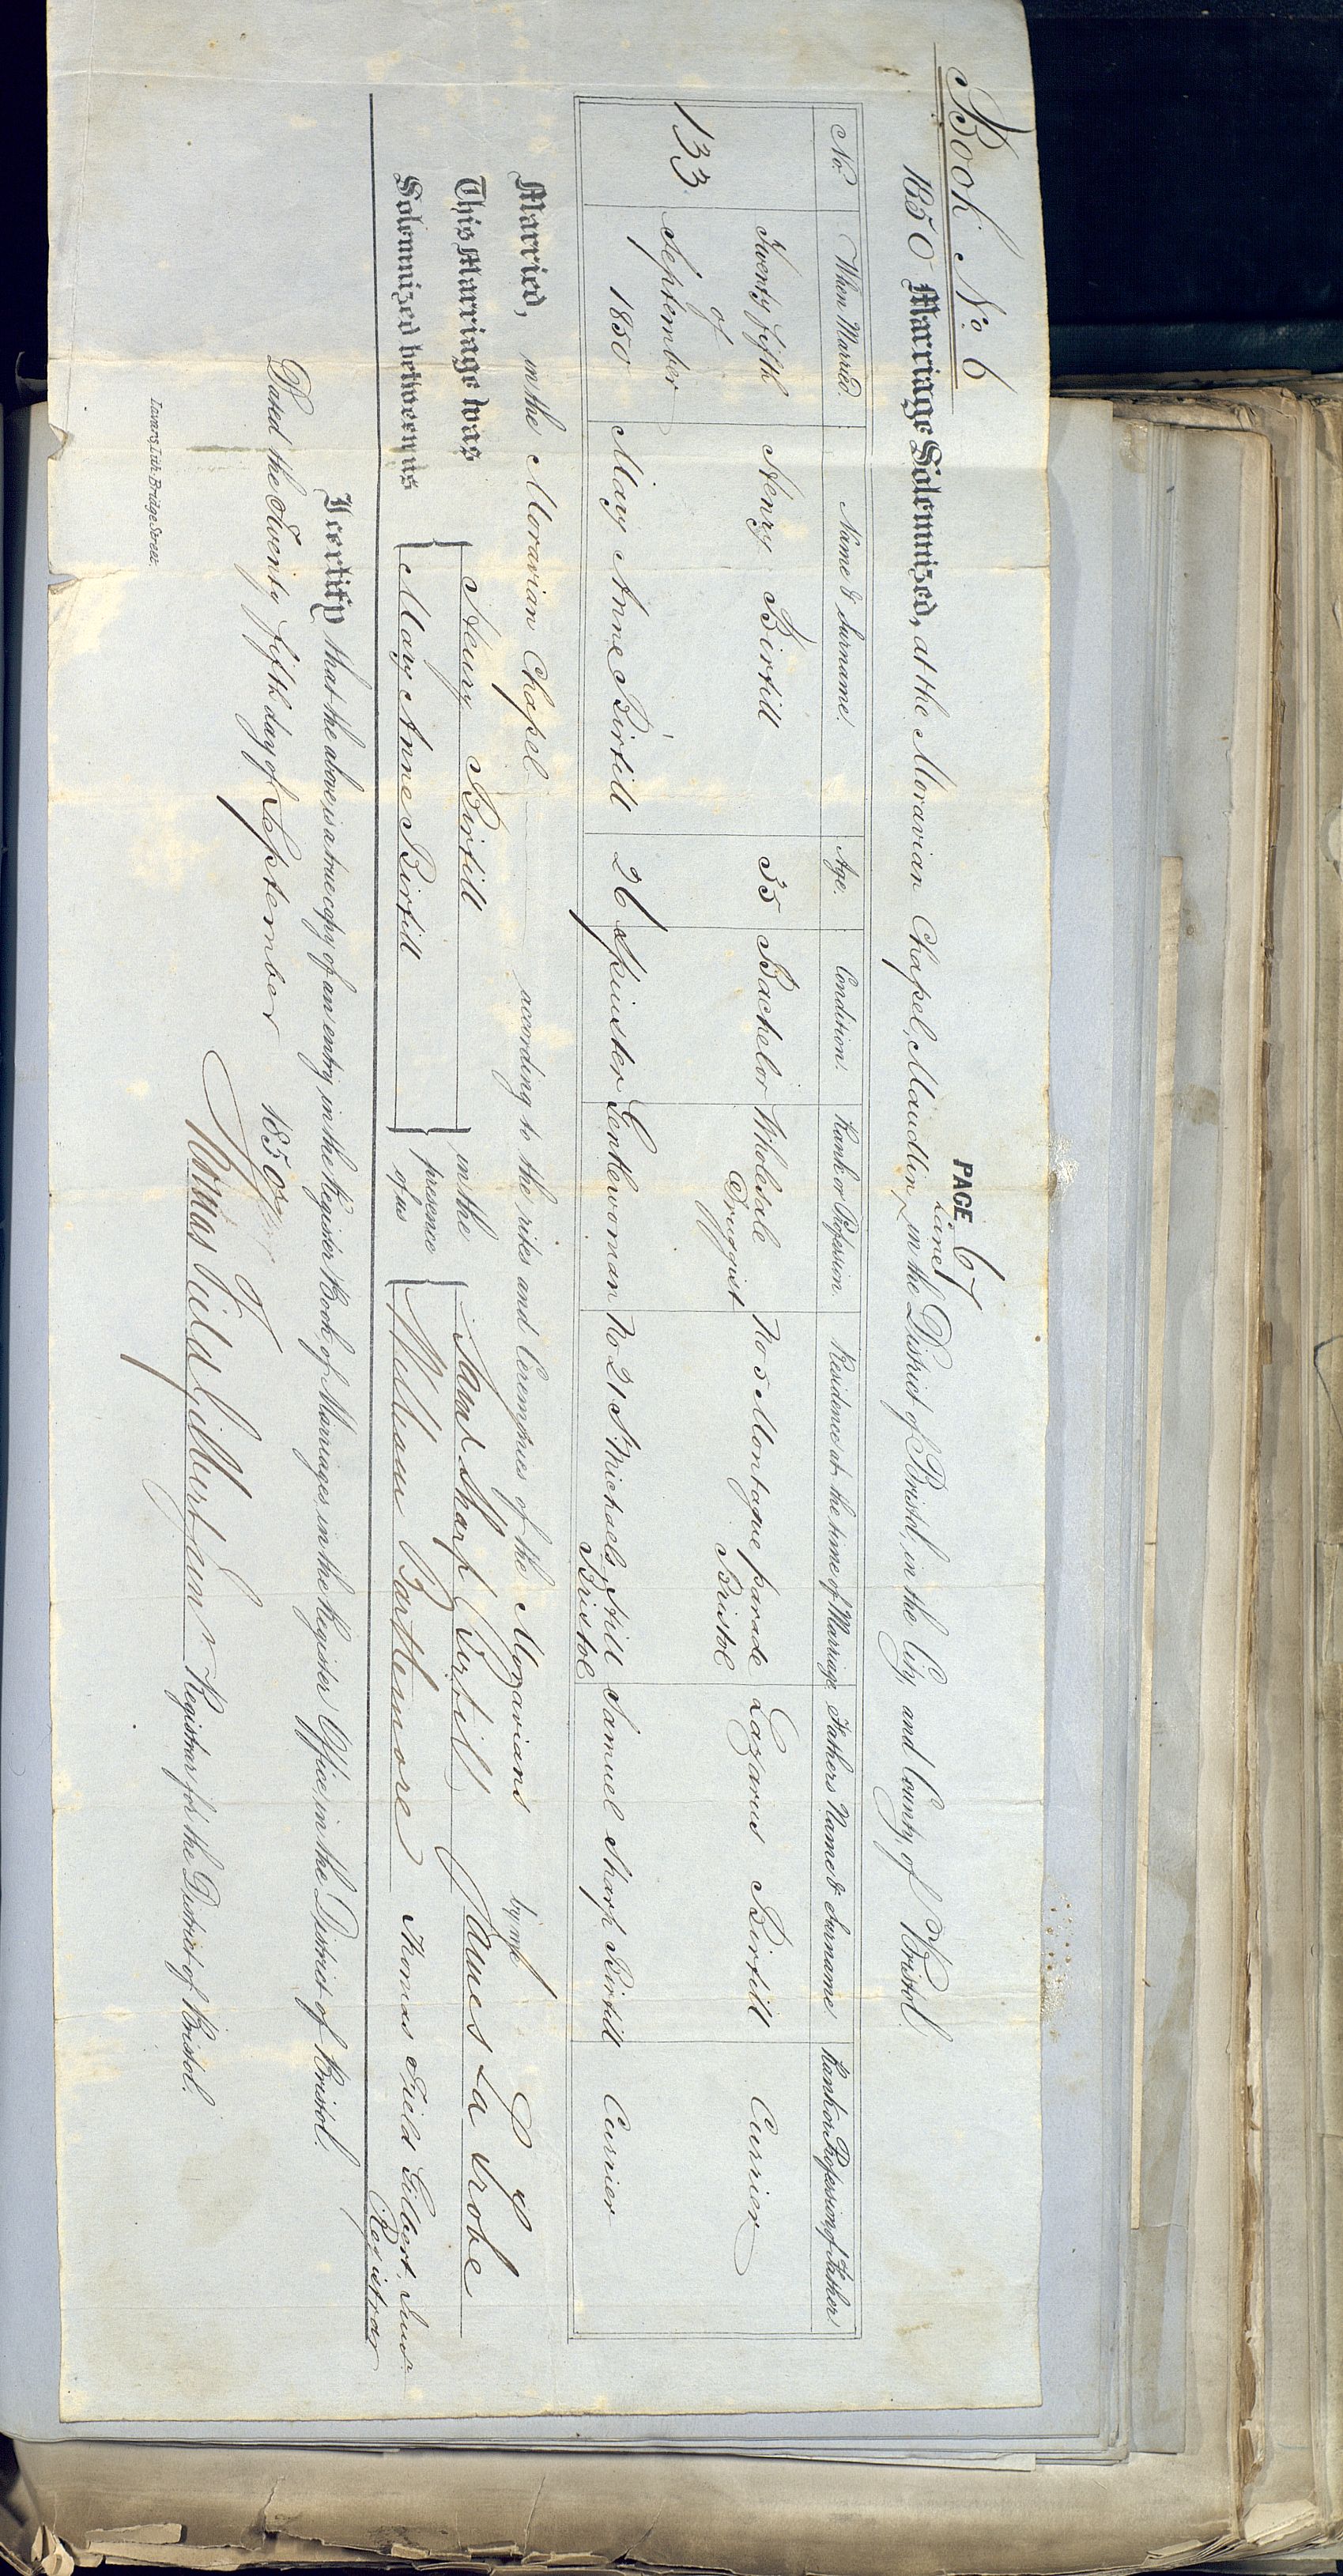 Book No. 6
PAGE 67
Lane
1850 Marriage Solemnized, at the Moravian Chapel, Maudlin ^ in the District of Bristol, in the City and County of Bristol
No. When Married. Name & Surname. Age. Condition. Rank or Profession. Residence at the time of Marriage. Fathers Name & Surname Rank or Profession of Father.
133. Twenty fifth of September 1850 Henry Birtill 35 Bachelor Wholesale Druggist No 5 Montague parade Bristol Lazarus Birtill Currier
Mary Anne Birtill 26 Spinster Gentlewoman No 21 St Michaels Hill Bristol Samuel Sharp Birtill Currier
Married, in the Moravian Chapel according to the rites and Ceremonies of the Moravians by me
This Marriage was Solemnized between us { Henry Birtill Mary Anne Birtill } in the presence of us { Saml Sharp Birtill William Bartlemore James La Trobe
Thomas Field Gilbert, Junr Registrar
I certify that the above is a true copy of an entry in the Register Book of Marriages, in the Register Office, in the District of Bristol.
Dated the Twenty fifth day of September 1850
Thomas Field Gilbert Junr Registrar for the District of Bristol.
Lavars, Lith. Bridge Street.